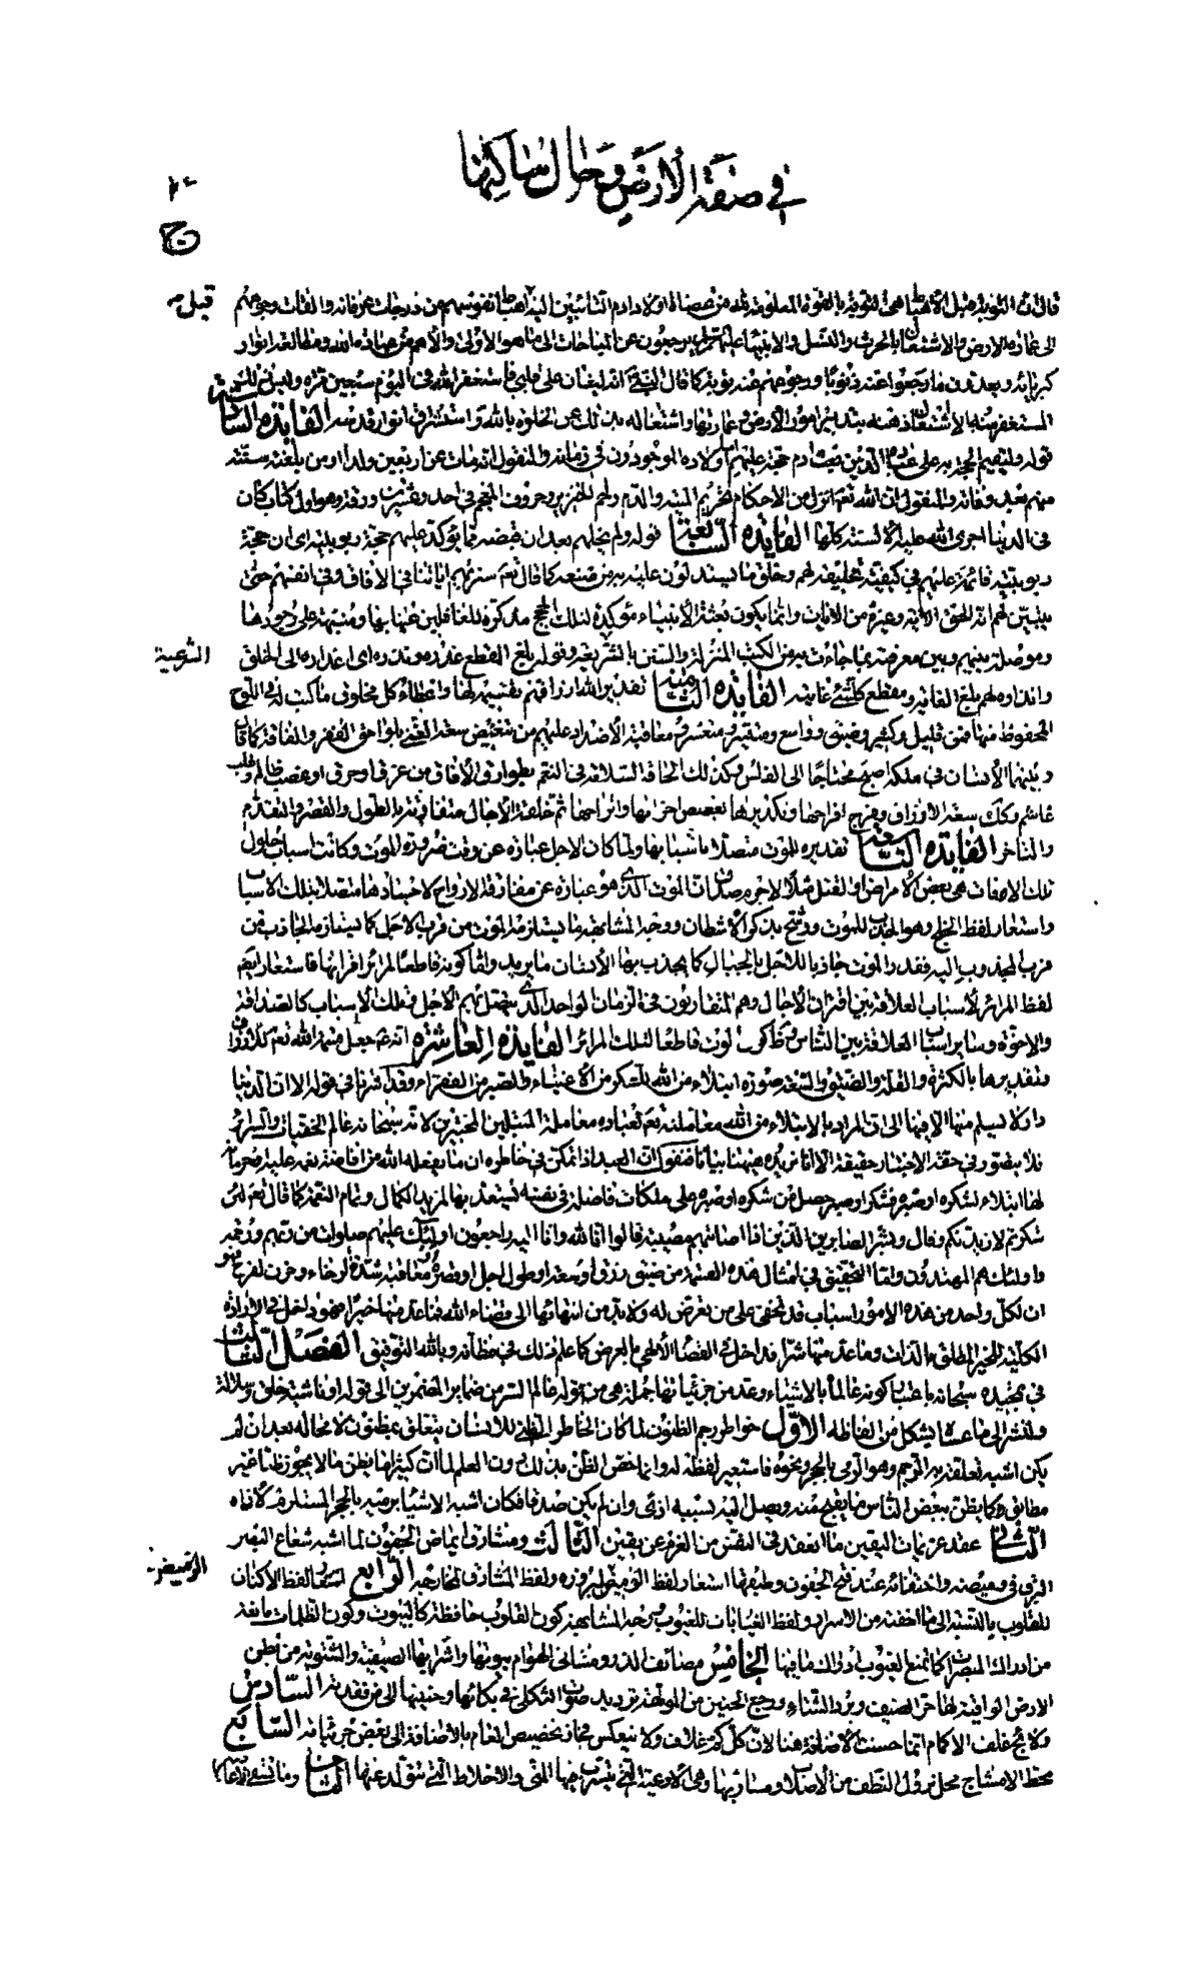 في صفة الأرض وحال ساكنيها
ج
قبل
المستغفر منه بالاشتغال ذهنه بتدبير امور الارض وعمارتها واشتغاله بذلك عن الخلوة بالله واستشراق انوار قدسه الفايدة السادسة
قوله وليقيم الحجة به على عباده الذين بعث ادم حجة عليهم اولاده الموجودون في زمانه والمنقول انه مات عن اربعين ولدا او من بلغته سنته
منهم بعد وفاته والمنقول ان الله تعم انزل من الاحكام تحريم الميتة والدم ولحم الخنزير وحروف المعجم في احدى وعشرين ورقة وهو اول كتاب كان
في الدنيا اجرى الله عليه الألسنة كلها الفايدة السابعة قوله ولم يخلهم بعد ان قبضه مما يؤكد عليهم حجة ربوبيته اي ان حجة
ربوبيته قائمة عليهم في كيفية تخليقه لهم وخلق ما يستدلون عليه به من صنعه كما قال تعم سنريهم اياتنا في الافاق وفي انفسهم حتى
يتبين لهم انه الحق الاية وغيره من الايات وانما يكون بعثة الأنبياء مؤكدة لتلك الحجج مذكرة للغافلين عنها بها ومنبهة على وجودها
وموصلة بينهم وبين معرفته بما جاءت به من الكتب المنزلة والسنن بالشريعة وقوله بلغ المقطع عذره ونذره اي اعذاره الى الخلق
الشرعية
وانذاره لهم بلغ الغاية ومقطع كل شيء غايته الفايدة الثامنة تقدير الله ارزاقهم بقسمته لها واعطاء كل مخلوق ما كتب له في اللوح
المحفوظ منها فمن قليل وكثير وضيق وواسع ومتيسر ومتعسر ومعاقبة الأضداد عليهم من تنغيص سعة الغنى بلواحق الفقر والفاقة كما قال
وبينما الأنسان في ملكه اصبح محتاجا الى الفلس وكذلك الحاقة السلامة في النعم بطوارق الأفات من غرق او حرق او غضب ظالم وقلب
غاشم وكك سعة الارزاق وفرج افراحها وتكديرها بغصص احزانها واتراحها ثم خلقة الأجال متفاوتة بالطول والقصر والتقدم
والتاخر الفايدة التاسعة تقديره للموت متصلا باسبابها ولما كان الاجل عبارة عن وقت ضرورة الموت وكانت اسباب حلول
تلك الاوقات هي بعض الأمراض او القتل مثلا لاجرم صدق ان الموت الذي هو عبارة عن مفارقة الارواح لاجسادها متصلا بتلك الاسباب
واستعار لفظ الخلج وهو الجذب للموت ورشح بذكر الأشطان ووجه المشابهة ما يستلزمه الموت من قرب الاجل كما يستلزمه الجاذب من
قرب المجذوب اليه فقدر الموت جاذبا للاجل بالحبال كما يجذب بها الأنسان ما يريد واما كونه قاطعا لمرائر اقرانها فاستعار ايضم
لفظ المرائر لأسباب العلاقة بين اقران الأجال وهم المتقاربون في الزمان الواحد الذي يتصل بهم الأجل وتلك الأسباب كالصداقة
والاخوة وساير اسباب العلاقة بين الناس وظ كون الموت قاطعا لتلك المرائر الفايدة العاشرة انه تعم جعل قسمة الله تعم للارزاق
وتقديرها بالكثرة والقلة والضيق والسعة صورة ابتلاء من الله للشكر من الأغنياء والصبر من الفقراء وقد اشرنا في قوله الا ان الدنيا
دار لا يسلم منها الا فيها الى ان المراد بالابتلاء من الله معاملته تعم لعباده معاملة المبتلين المختبرين لانه سبحانه عالم الخفيات والسرائر
فلا يتصور في حقه الاختبار حقيقة الا انا نزيده ههنا بيانا فنقول ان العبد اذا تمكن في خاطره ان ما يفعله الله من افاضة نعمه عليه وحرمانه
لها ابتلاء لشكره او صبره فشكر او صبر حصل من شكره او صبره على ملكات فاضلة في نفسه يستعد بها لمزيد الكمال وتمام النعمة كما قال تعم لئن
شكرتم لازيدنكم وقال وبشر الصابرين الذين اذا اصابتهم مصيبة قالوا انا لله وانا اليه راجعون اولئك عليهم صلوات من ربهم ورحمة
واولئك هم المهتدون واما التحقيق في امثال هذه القسمة من ضيق رزق او سعة او طول اجل او قصره ومعاقبة شدة او رخاء وحزن لفرح فهو
ان لكل واحد من هذه الامور اسباب قد تخفى على من تعرض له ولا بد من انتهائها الى قضاء الله فما عد منها خيرا فهو داخل في الارادة
الكلية للخير المطلق بالذات وما عد منها شرا فداخل في القضا الألهي بالعرض كما علم ذلك في مظانه وبالله التوفيق الفصل الثالث
في تمجيده سبحانه باعتبار كونه عالما بالاشياء وعد من جزئياتها جملة هي من قوله عالم السر من ضماير المضمرين الى قوله او ناشئة خلق وسلالة
ولنشر الى ما عساه يشكل من الفاظه الاول خواطر رجم الظنون لما كان الخاطر الظني للانسان يتعلق بمظنون لا محالة بعد ان لم
يكن اشبه تعلقه به الرجم وهو الرمي بالحجر ونحوه فاستعير لفظه له وانما خص الظن بذلك دون العلم لما ان كثيرا ما يظن ما لا يجوز ظنا غير
مطابق وكما يظن ببعض الناس ما يقبح منه ويصل اليه بسببه اذى وان لم يكن صدقا فكان اشبه الاشياء برميه بالحجر المستلزم لأذاه
الثاني عقد عزيمات اليقين ما انعقد في النفس من العزم عن يقين الثالث ومشارق ايماض الجفون لما اشبه شعاع البصر
البرق في وميضه واختفائه عند فتح الجفون وطبقها استعار لفظ الوميض لبروزه ولفظ المشارق لمخارجه الرابع استعار لفظ الأكنان
للقلوب بالنسبة الى ما اخفته من الاسرار ولفظ الغيابات للغيوب ووجه المشابهة كون القلوب حافظة كالبيوت وكون الظلمات مانعة
من ادراك المبصرات كما تمنع الغيوب ادراك ما فيها الخامس مصائف الذر ومشاتي الهوام بيوتها واشرابها الصيفية والشتوية من بطن
الارض لواقية لها حر الصيف وبرد الشتاء ورجع الحنين من المولهات ترديد صوت الثكلى في بكائها وحنينها الى من فقدته السادس
ولائج غلف الاكمام انما حسنت الأضافة هنا لان كل كم غلاف ولا ينعكس فجاز تخصيص العام بالاضافة الى بعض جزئياته السابع
محط الامشاج محل نزول النطف من الأصلاب ومساربها وهي الأوعية التي يتسرب فيها المني والاخلاط التي يتولد عنها الثامن وما تسفى الأعاصير